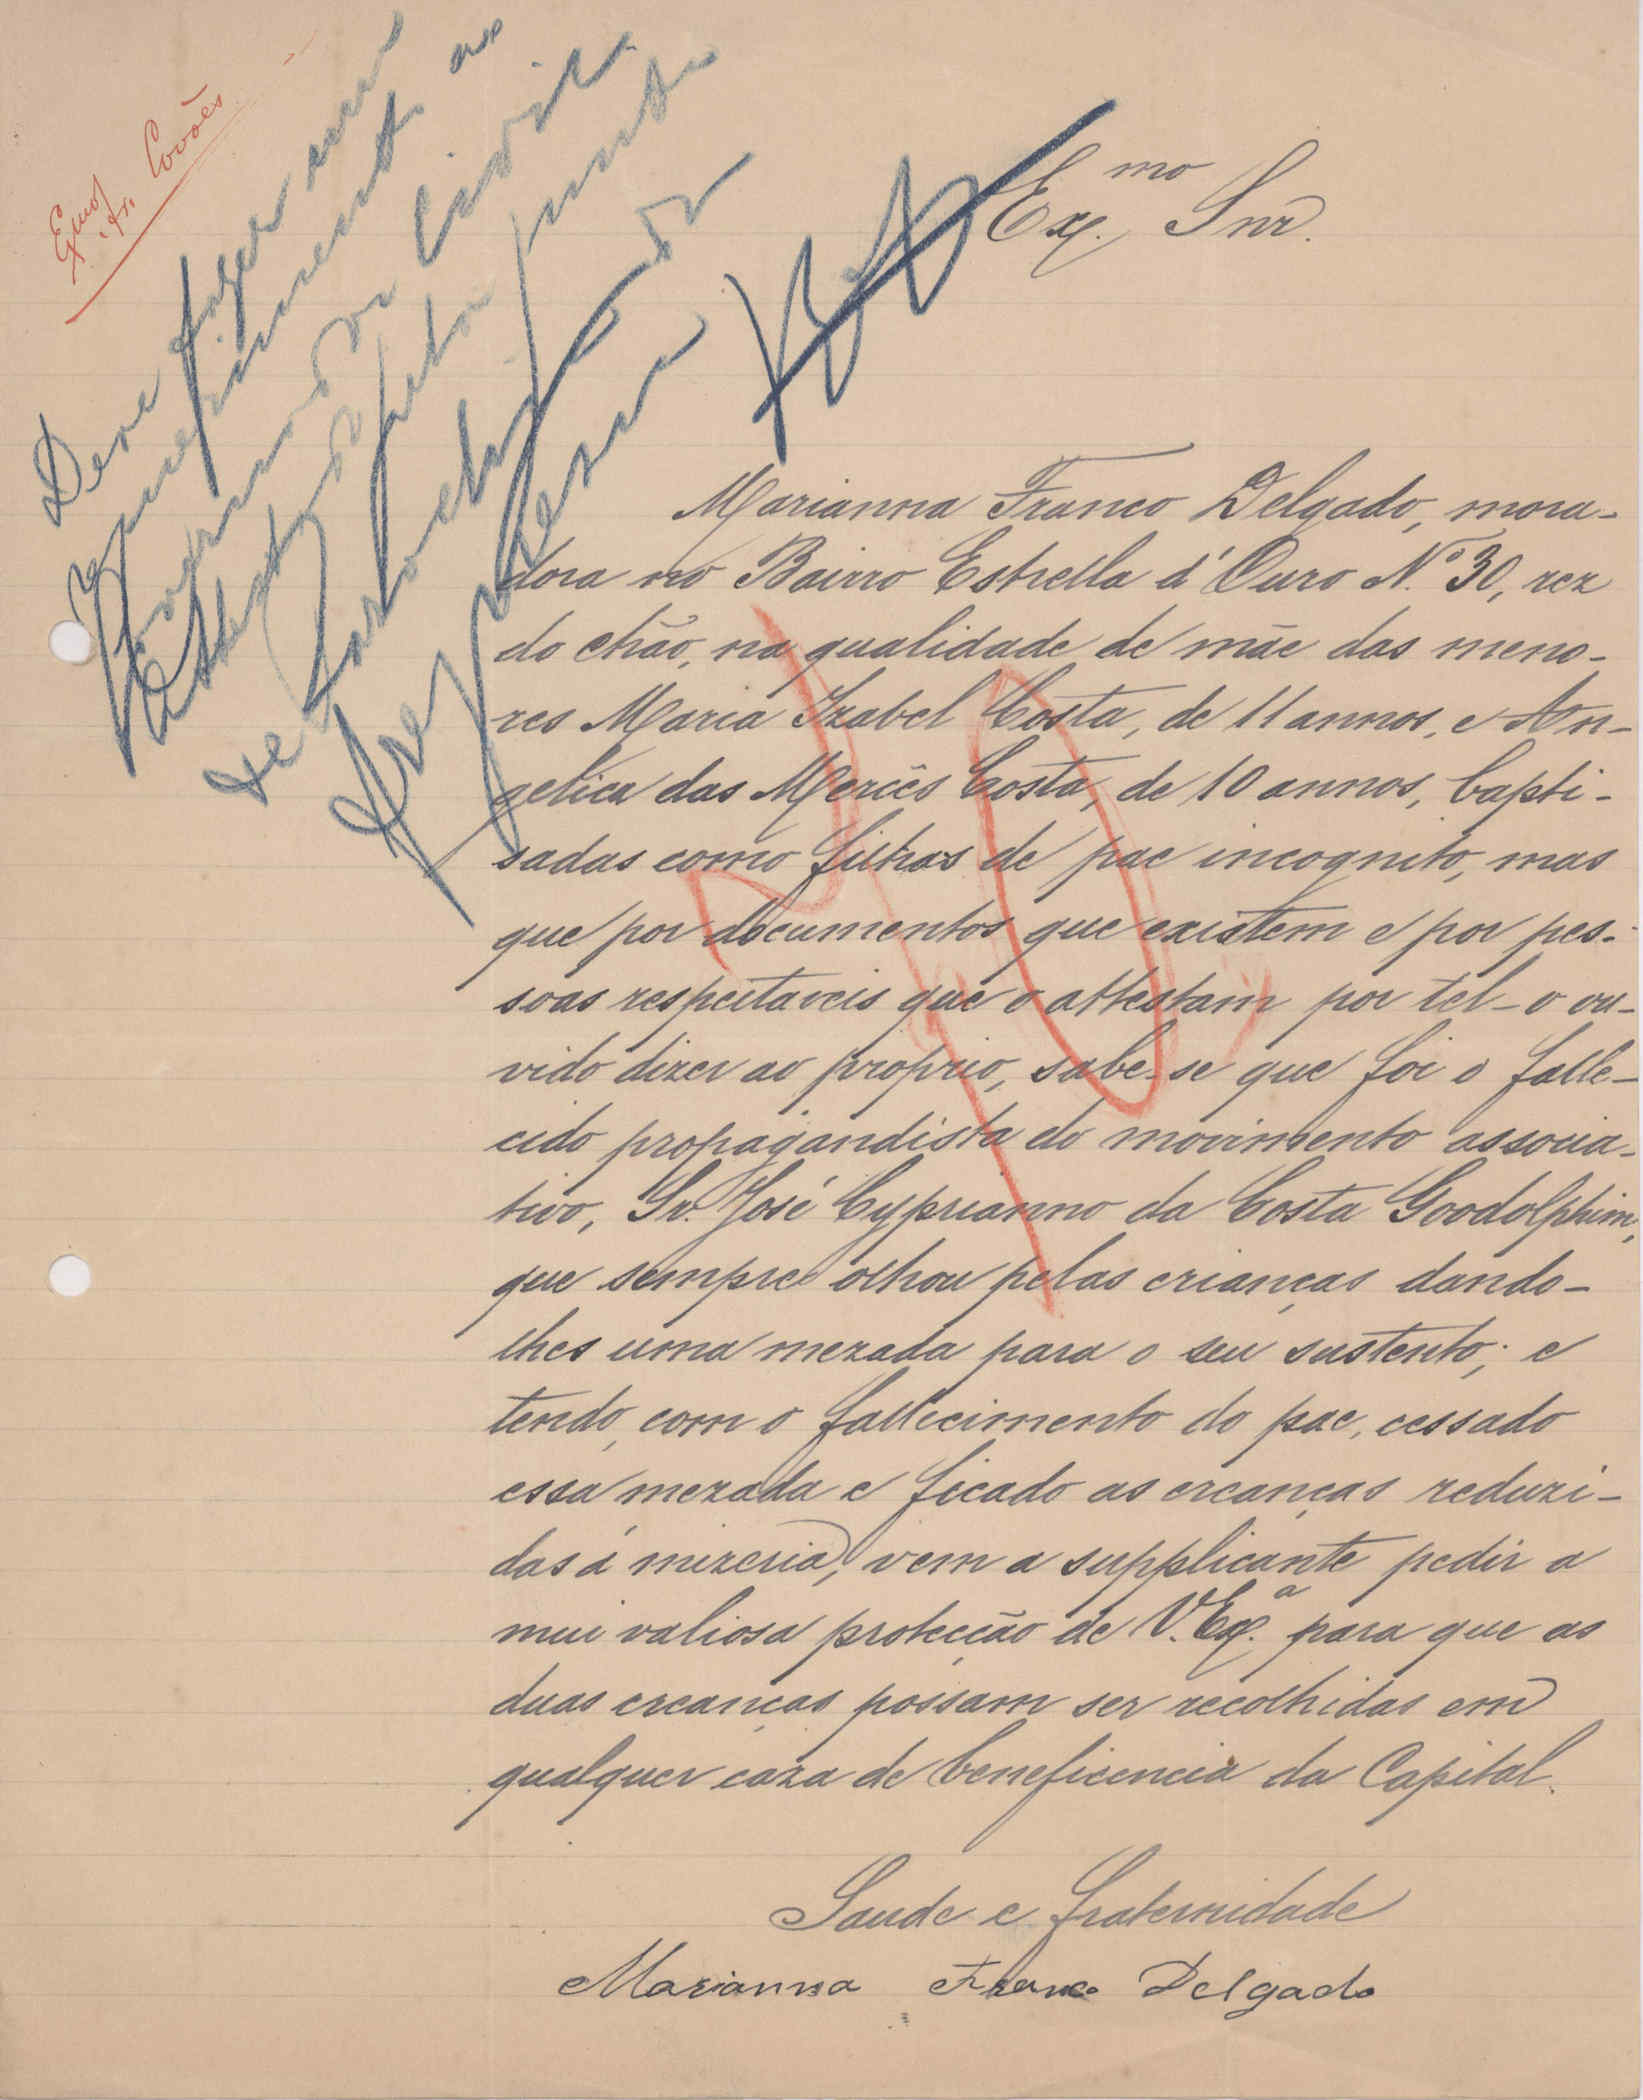 Covões
Deve fazer um
requerimento ao
Governador Civil
attestado pela junta
de parochia
Ex.mo Snr.
Marianna Franco Delgado, mora-
dora no Bairro Estrella d'Ouro N.º 30, rez
do chão, na qualidade de mãe das meno-
res Maria Izabel Costa, de 11 annos, e An-
gelica das Mercês Costa, de 10 annos, bapti-
sadas como filhas de pae incognito, mas
que por documentos que existem e por pes-
soas respeitaveis que o attestam por tel-o ou-
vido dizer ao proprio, sabe-se que foi o falle-
cido propagandista do movimento associa-
tivo, Sr. José Cyprianno da Costa Goodolphim,
que sempre olhou pelas crianças dando-
lhes uma mezada para o seu sustento; e
tendo, com o fallecimento do pae, cessado
essa mezada e ficado as creanças reduzi-
das á mizeria, vem a supplicante pedir a
mui valiosa protecção de V. Ex.ª para que as
duas creanças possam ser recolhidas em
qualquer caza de beneficencia da Capital.
Saude e fraternidade
Marianna Franco Delgado